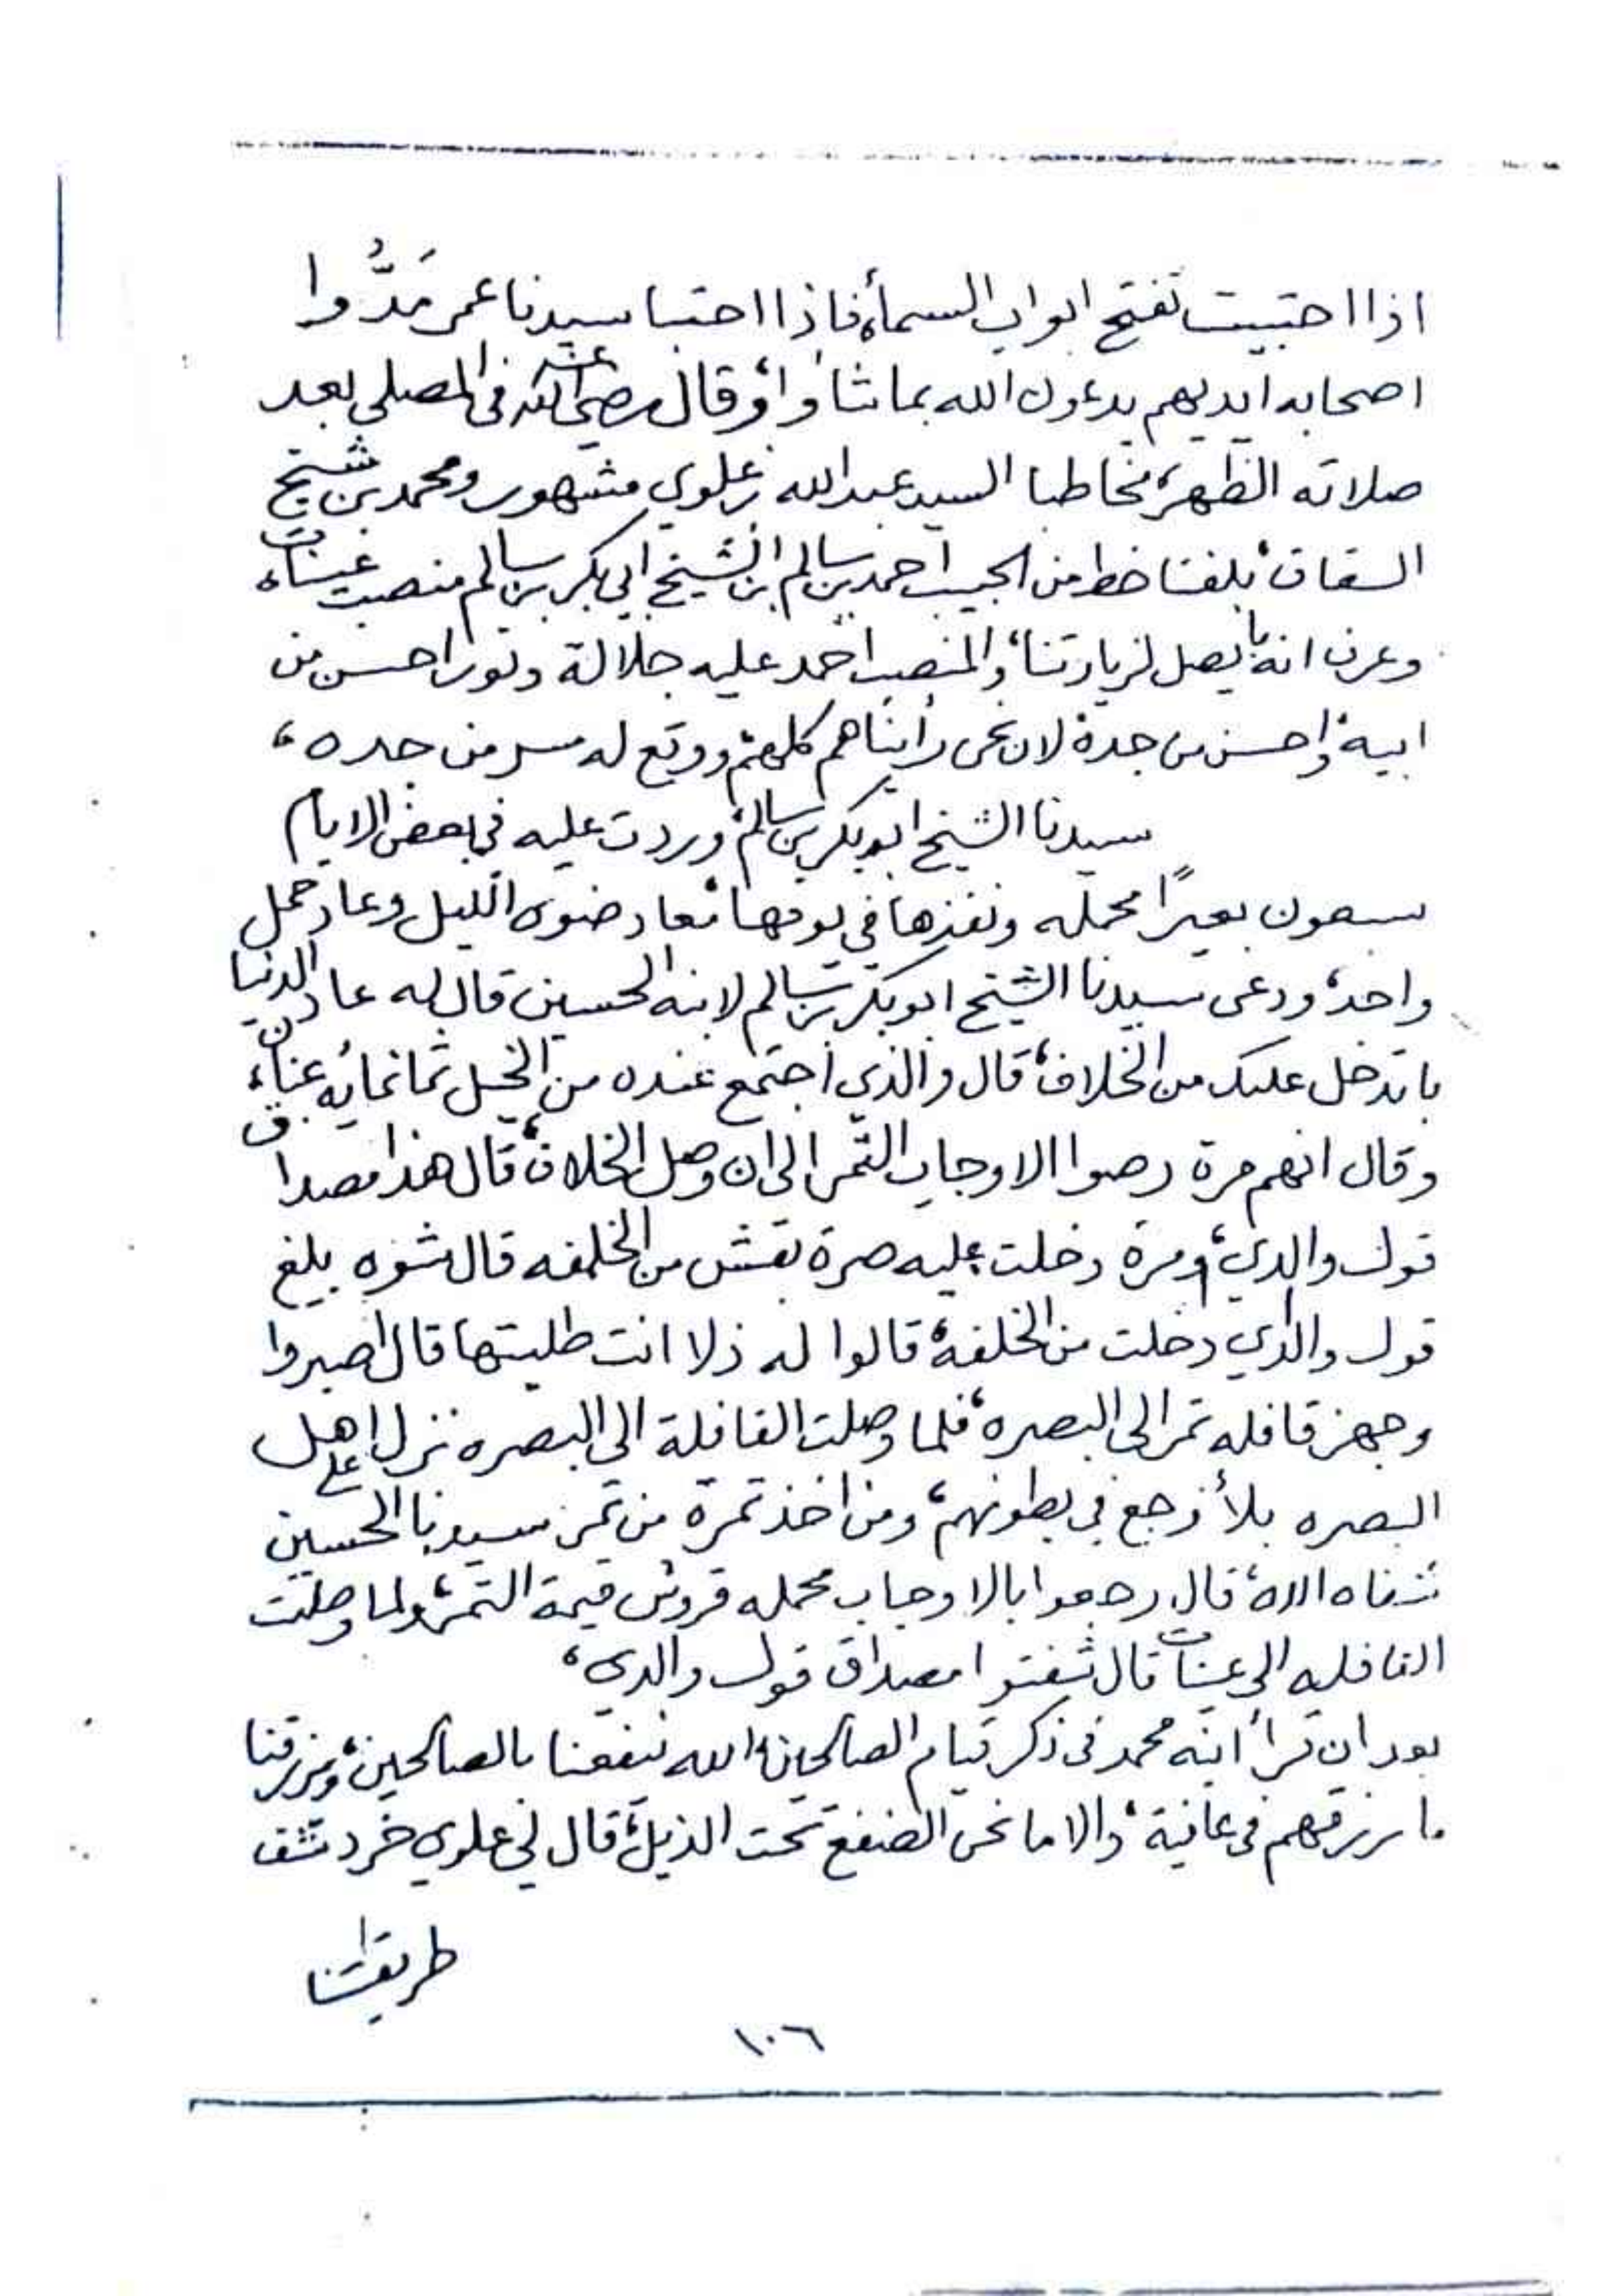 اذا احتبيت تفتح ابواب السماء، فاذا احتبا سيدنا عمر مَدُّوا
اصحابه ايديهم يدعون الله بما شاؤا، وقال رضي الله عنه في المصلى بعد
صلاته الظهر، مخاطبا السيد عبدالله بن علوي مشهور ومحمد بن شيخ
السقاف، بلغنا خط من الحبيب احمد بن سالم ابن الشيخ ابي بكر بن سالم منصب عينات،
وعرف انه با يصل لزيارتنا، والمنصب احمد عليه جلالة ونور احسن من
ابيه، واحسن من جده، لان نحن رأيناهم كلهم، ووقع له سر من جده،
سيدنا الشيخ ابوبكر بن سالم، وردت عليه في بعض الايام
سبعون بعيرًا محمله ونفذها في يومها، عاد ضوى الليل وعاد حمل
واحد، ودعى سيدنا الشيخ ابوبكر بن سالم لابنه الحسين قال له عاد الدنيا
با تدخل عليك من الخلاف، قال والذي اجتمع عنده من الخيل ثمانمائه عنان،
وقال انهم مرة رصوا الاوجاب التمر الى ان وصل الخلاف، قال هذا مصداق
قول والدي، ومرة دخلت عليه صرة بقش من الخلفه قال شوه بلغ
قول والدي دخلت من الخلفة، قالوا له ذلا انت طلبتها قال اصبروا
وجهز قافله تمر الى البصره، فلما وصلت القافلة الى البصره نزل على اهل
البصره بلاء وجع في بطونهم، ومن اخذ تمرة من تمر سيدنا الحسين
شفاه الله، قال رجعوا بالاوجاب محمله قروش قيمة التمر، ولما وصلت
القافله الى عينات قال شفتوا مصداق قول والدي،
بعد ان قرأ ابنه محمد في ذكر قيام الصالحين، الله ينفعنا بالصالحين، ويرزقنا
ما رزقهم في عافية، والا ما نحن الضفع تحت الذيل، قال لي علوي خرد شف
طريقتنا
١٠٦